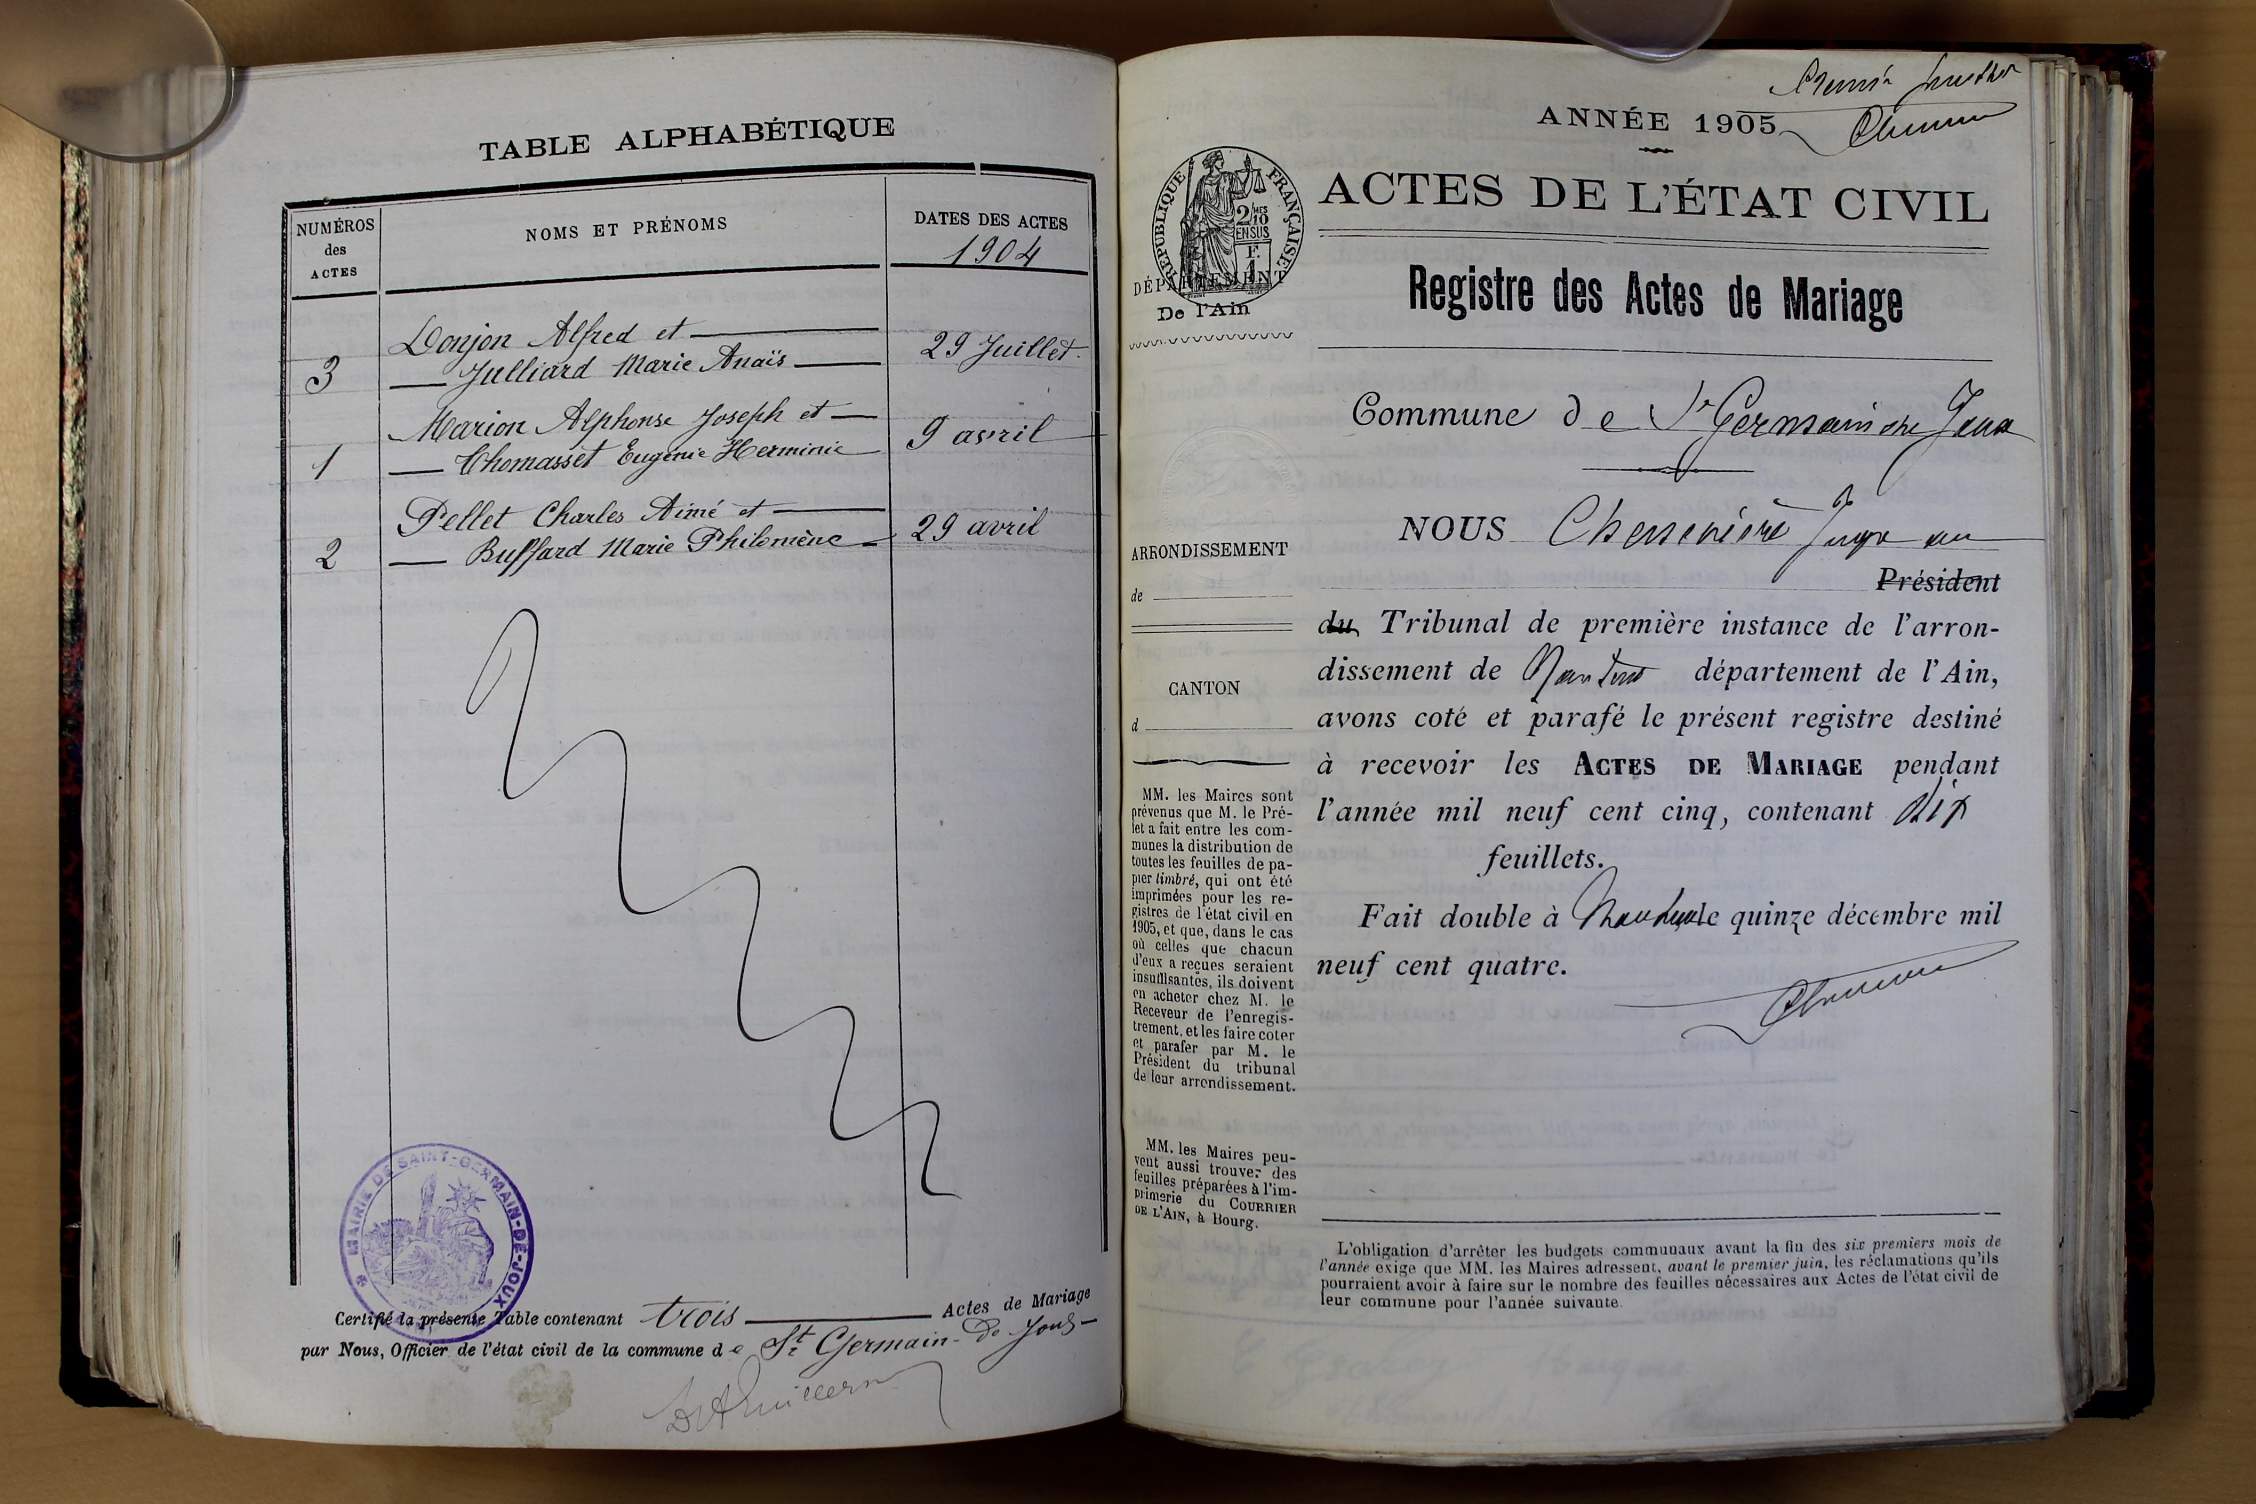 TABLE ALPHABÉTIQUE
NUMÉROS
des
ACTES
NOMS ET PRÉNOMS
DATES DES ACTES
1904
3
Donjon Alfred et
Julliard Marie Anaïs
29 Juillet
1
Marion Alphonse Joseph et
Thomasset Eugénie Herminie
9 avril
2
Pellet Charles Aimé et
Buffard Marie Philomène
29 avril
MAIRIE DE SAINT-GERMAIN-DE-JOUX
Certifié la présente Table contenant trois Actes de Mariage
par Nous, Officier de l'état civil de la commune de St Germain-de-Joux
ANNÉE 1905
ACTES DE L'ÉTAT CIVIL
RÉPUBLIQUE FRANÇAISE
2/10MES
EN SUS
1 F.
DÉPARTEMENT
De l'Ain
Registre des Actes de Mariage
Commune de St Germain de Joux
NOUS Chenevière Juge au
Président
du Tribunal de première instance de l'arron-
dissement de Nantua département de l'Ain,
avons coté et parafé le présent registre destiné
à recevoir les ACTES DE MARIAGE pendant
l'année mil neuf cent cinq, contenant dix
feuillets.
Fait double à Nantua le quinze décembre mil
neuf cent quatre.
ARRONDISSEMENT
de
CANTON
d
MM. les Maires sont
prévenus que M. le Pré-
fet a fait entre les com-
munes la distribution de
toutes les feuilles de pa-
pier timbré, qui ont été
imprimées pour les re-
gistres de l'état civil en
1905, et que, dans le cas
où celles que chacun
d'eux a reçues seraient
insuffisantes, ils doivent
en acheter chez M. le
Receveur de l'enregis-
trement, et les faire coter
et parafer par M. le
Président du tribunal
de leur arrondissement.
MM. les Maires peu-
vent aussi trouver des
feuilles préparées à l'im-
primerie du COURRIER
DE L'AIN, à Bourg.
L'obligation d'arrêter les budgets communaux avant la fin des six premiers mois de
l'année exige que MM. les Maires adressent, avant le premier juin, les réclamations qu'ils
pourraient avoir à faire sur le nombre des feuilles nécessaires aux Actes de l'état civil de
leur commune pour l'année suivante.